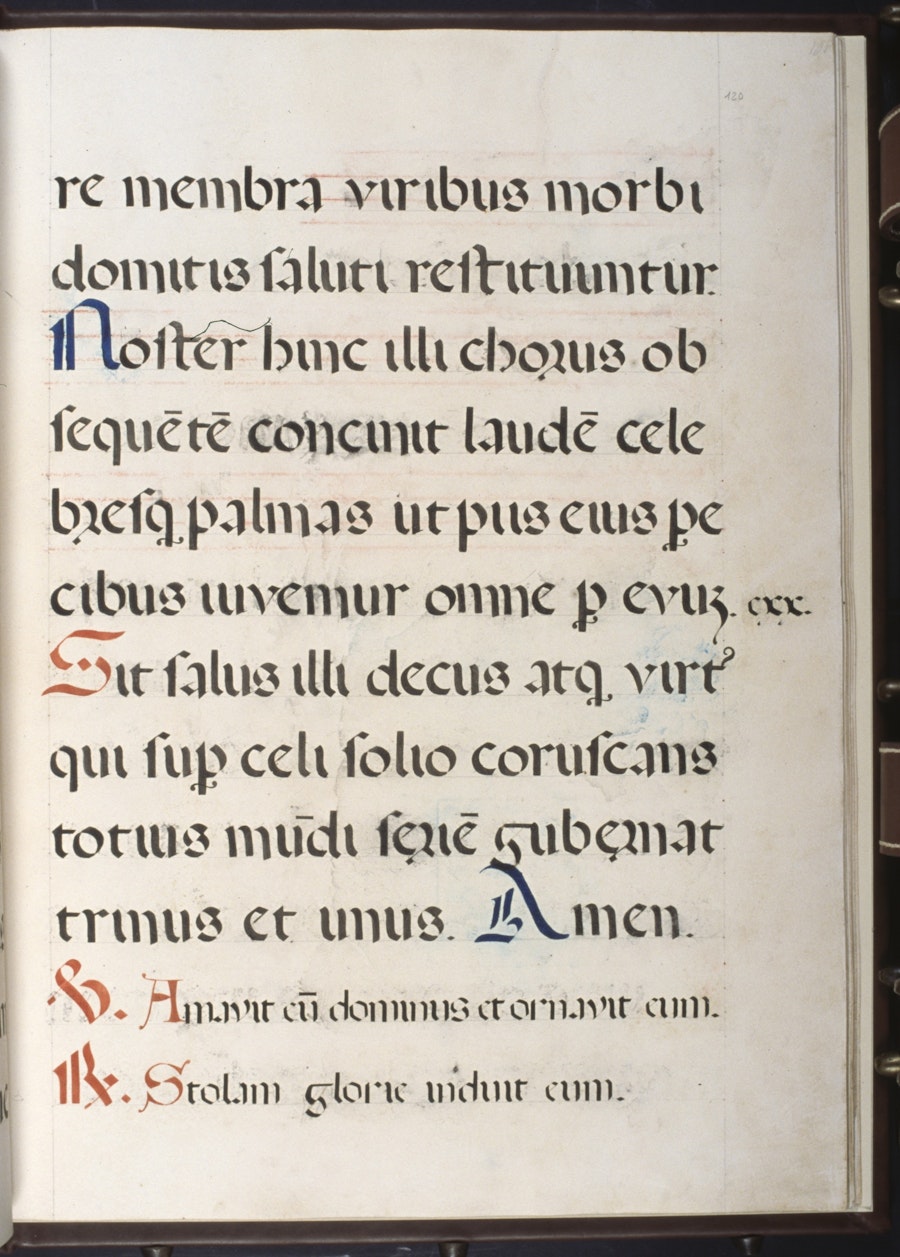 120
re membra viribus morbi
domitis saluti restituuntur.
Noster hinc illi chorus ob
sequētē concinit laudē cele
bresq palmas ut pus eius pe
cibus iuvemur omne p evuꝫ. cxx.
Sit salus illi decus atq virtꝰ
qui sup celi solio coruscans
totius mūdi seriē gubernat
trinus et unus. Amen.
℣. Amavit eū dominus et ornavit eum.
℟. Stolam glorie induit eum.